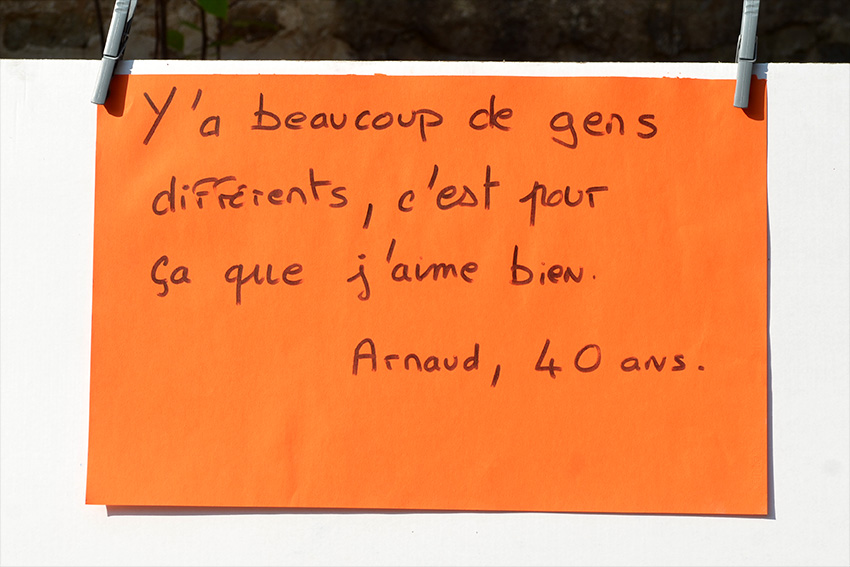 Y'a beaucoup de gens
différents, c'est pour
ça que j'aime bien.
Arnaud, 40 ans.